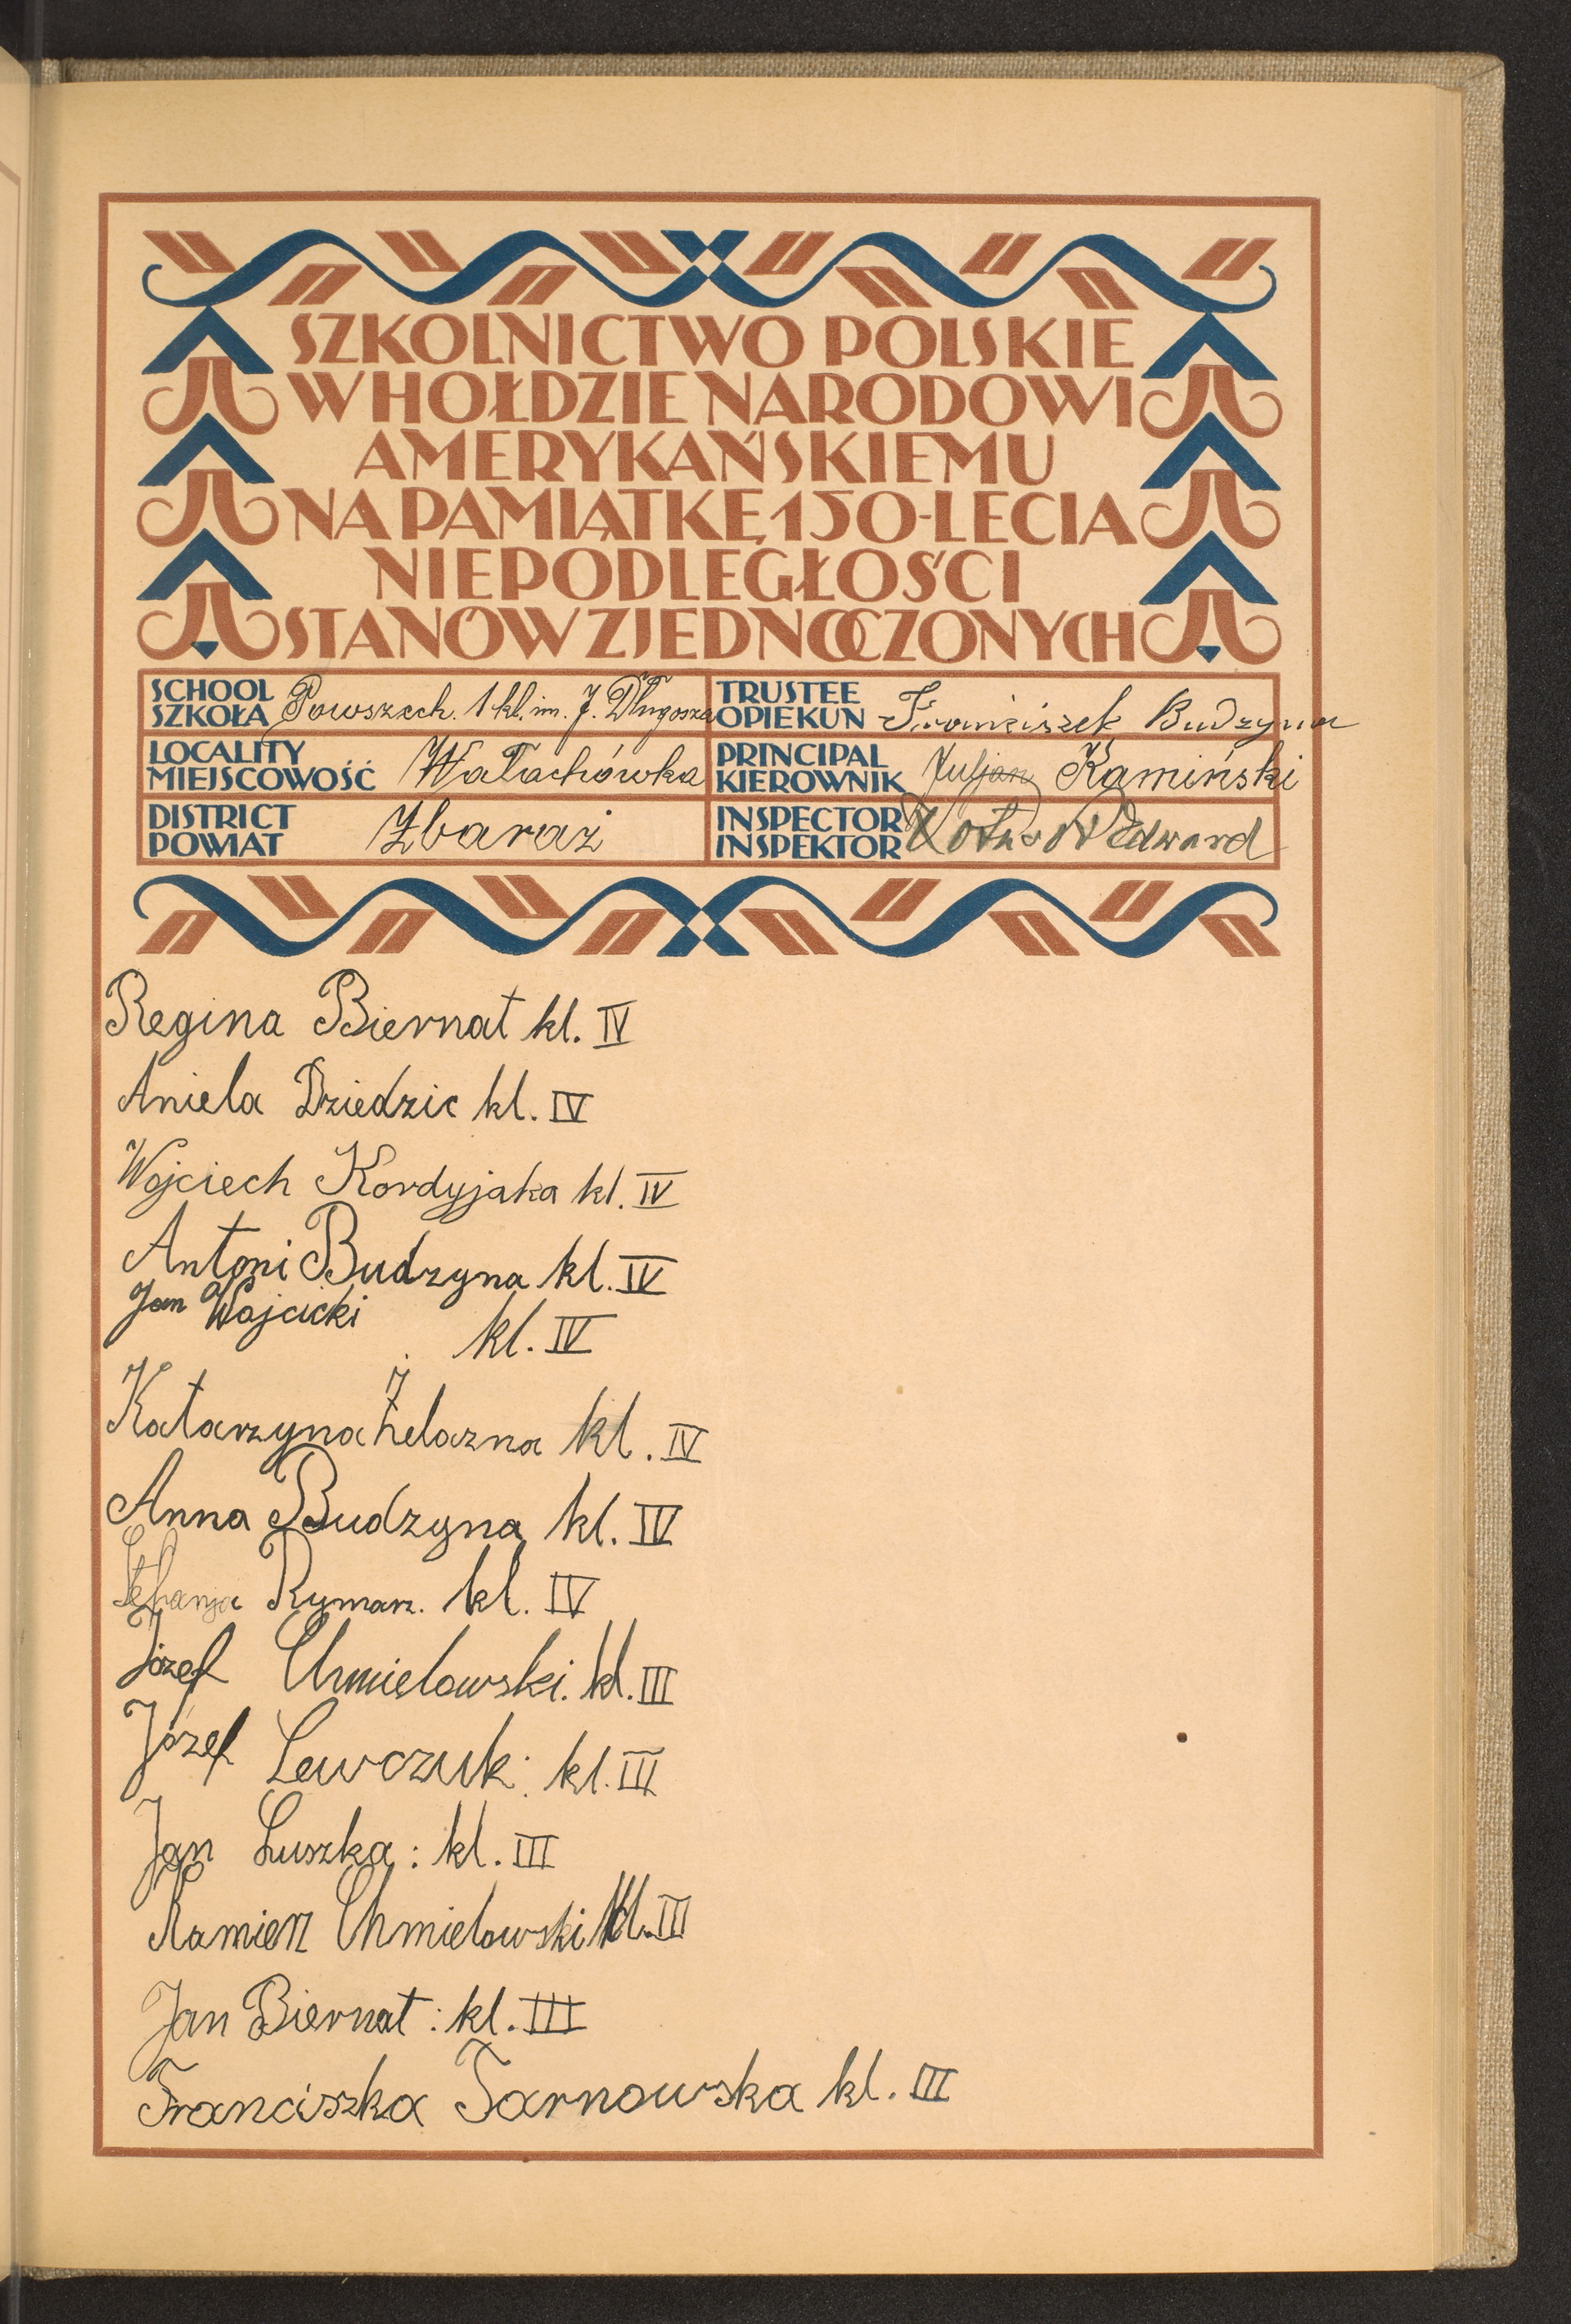 SZKOLNICTWO POLSKIE
W HOŁDZIE NARODOWI
AMERYKAŃSKIEMU
NA PAMIĄTKĘ 150-LECIA
NIEPODLEGŁOŚCI
STANÓW ZJEDNOCZONYCH
SCHOOL
SZKOŁA Powszech. 1 kl. im. J. Długosza
TRUSTEE
OPIEKUN Franciszek Budzyna
LOCALITY
MIEJSCOWOŚĆ Wałachówka
PRINCIPAL
KIEROWNIK Juljan Kamiński
DISTRICT
POWIAT Zbaraż
INSPECTOR
INSPEKTOR Edward
Regina Biernat kl. IV
Aniela Dziedzic kl. IV
Wojciech Kordyjaka kl. IV
Antoni Budzyna kl. IV
Jan Wojcicki kl. IV
Katarzyna Żelazna kl. IV
Anna Budzyna kl. IV
Stefanja Rymarz. kl. IV
Józef Chmielowski. kl. III
Józef Lewczuk: kl. III
Jan Łuszka: kl. III
Kamierz Chmielowski kl. III
Jan Biernat: kl. III
Franciszka Tarnowska kl. III